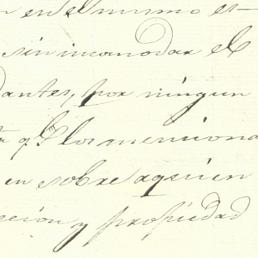 en el mismo es-
sin incomodar el
dantes, por ningun
q.e los menciona
en sobre aquien
cion y propiedad